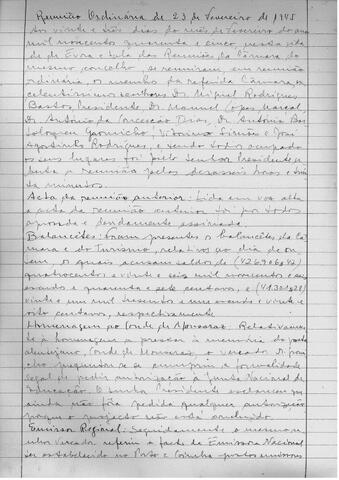 Reunião Ordinária de 23 de Fevereiro de 1945
Aos vinte e três dias do mês de Fevereiro do ano
mil novecentos quarenta e cinco, nesta cida
de de Evora e Sala das Reuniões da Câmara do
mesmo concelho, se reuniram, em reunião
ordinária, os membros da referida Câmara, os
excelentíssimos senhores Dr. Miguel Rodrigues
Bastos, Presidente, Dr. Manuel Lopes Marçal,
Dr. António da Conceição Dias, Dr. António Bar
tolomeu Gromicho, Vitorino Simões e José
Agostinho Rodrigues, e sendo todos ocupado
os seus lugares foi pelo Senhor Presidente a
berta a reunião pelas dezasseis horas e trin
ta minutos.
Acta da reunião anterior: Lida em voz alta
a acta da reunião anterior foi por todos
aprovada e devidamente assinada.
Balancetes: Foram presentes os balancetes da Câ
mara e do Turismo, relativos ao dia de on
tem, os quais acusam saldos de (426.906$47)
quatrocentos e vinte e seis mil novecentos e seis
escudos e quarenta e sete centavos, e (21.301$28)
vinte e um mil trezentos e um escudo e vinte e
oito centavos, respectivamente.
Homenagem ao Conde de Monsaraz: Relativamen
te à homenagem a prestar à memória do poeta
alentejano, Conde de Monsaraz, o vereador Gromi
cho perguntou se se cumpriu a formalidade
legal de pedir autorização à Junta Nacional de
Educação. O Senhor Presidente esclareceu que
ainda não fôra pedida qualquer autorização
porque o projecto não está concluído.
Emissor Regional: Seguidamente o mesmo se
nhor Vereador referiu o facto da Emissora Nacional
ter estabelecido no Porto e Coimbra postos emissores